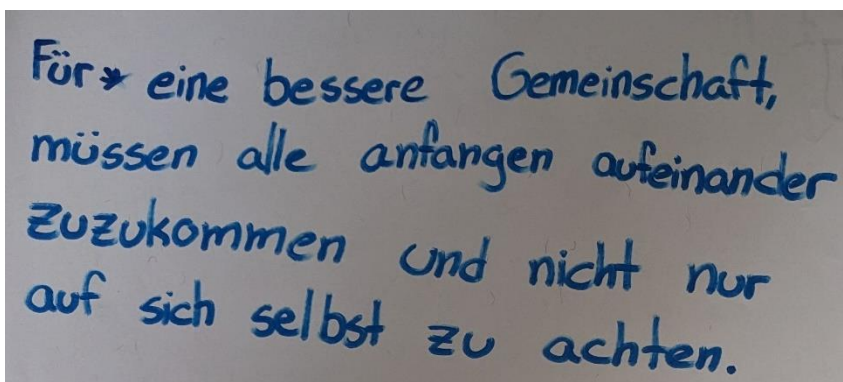 Für* eine bessere Gemeinschaft,
müssen alle anfangen aufeinander
zuzukommen und nicht nur
auf sich selbst zu achten.